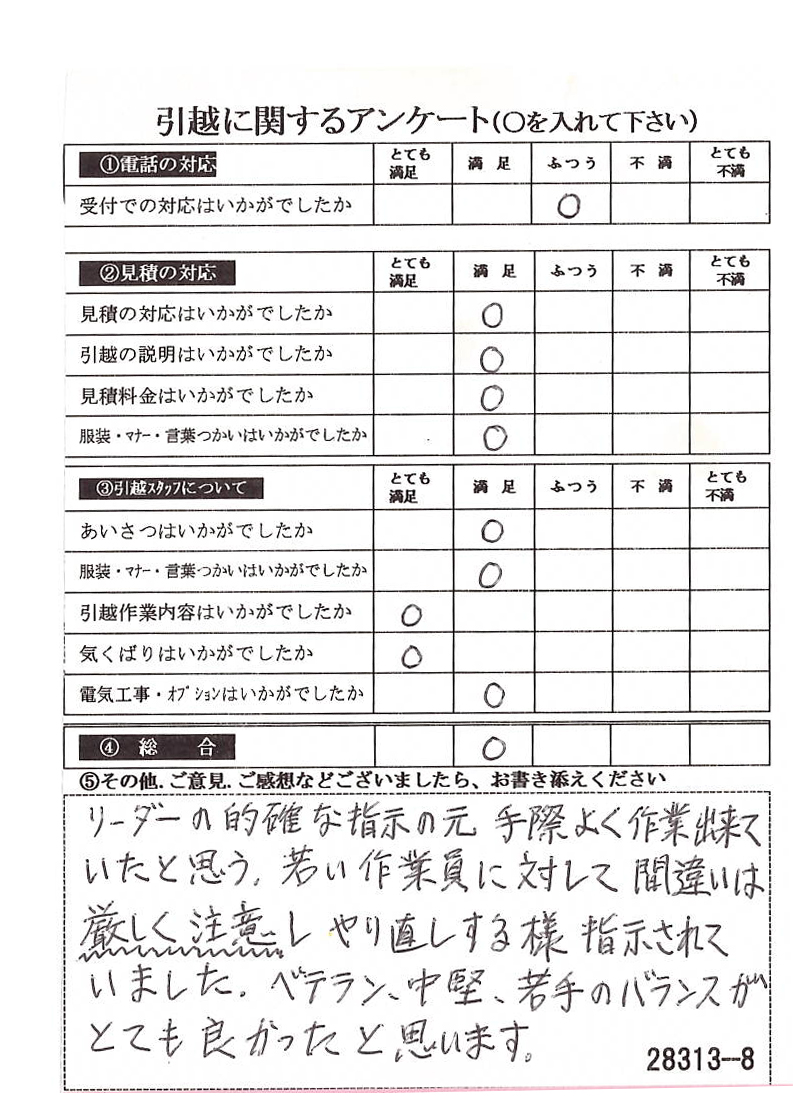 引越に関するアンケート(○を入れて下さい)
①電話の対応 とても満足 満足 ふつう 不満 とても不満
受付での対応はいかがでしたか ○
②見積の対応 とても満足 満足 ふつう 不満 とても不満
見積の対応はいかがでしたか ○
引越の説明はいかがでしたか ○
見積料金はいかがでしたか ○
服装・マナー・言葉つかいはいかがでしたか ○
③引越スタッフについて とても満足 満足 ふつう 不満 とても不満
あいさつはいかがでしたか ○
服装・マナー・言葉つかいはいかがでしたか ○
引越作業内容はいかがでしたか ○
気くばりはいかがでしたか ○
電気工事・オプションはいかがでしたか ○
④総合 ○
⑤その他.ご意見.ご感想などございましたら、お書き添えください
リーダーの的確な指示の元 手際よく作業出来て
いたと思う。若い作業員に対して間違いは
厳しく注意し やり直しする様 指示されて
いました。ベテラン、中堅、若手のバランスが
とても良かったと思います。
28313--8